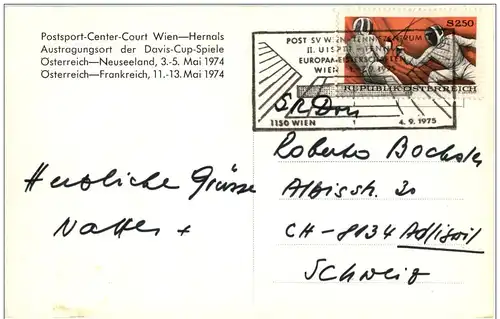 Postsport-Center-Court Wien—Hernals
Austragungsort der Davis-Cup-Spiele
Österreich—Neuseeland, 3.-5. Mai 1974
Österreich—Frankreich, 11.-13. Mai 1974
POST SV WIEN TENNISZENTRUM
EUROPAMEISTERSCHAFTEN
WIEN
S 2.50
REPUBLIK ÖSTERREICH
1150 WIEN 1 4.9.1975
Herzliche Grüsse
Roberto
Albisstr.
CH-8134 Adliswil
Schweiz